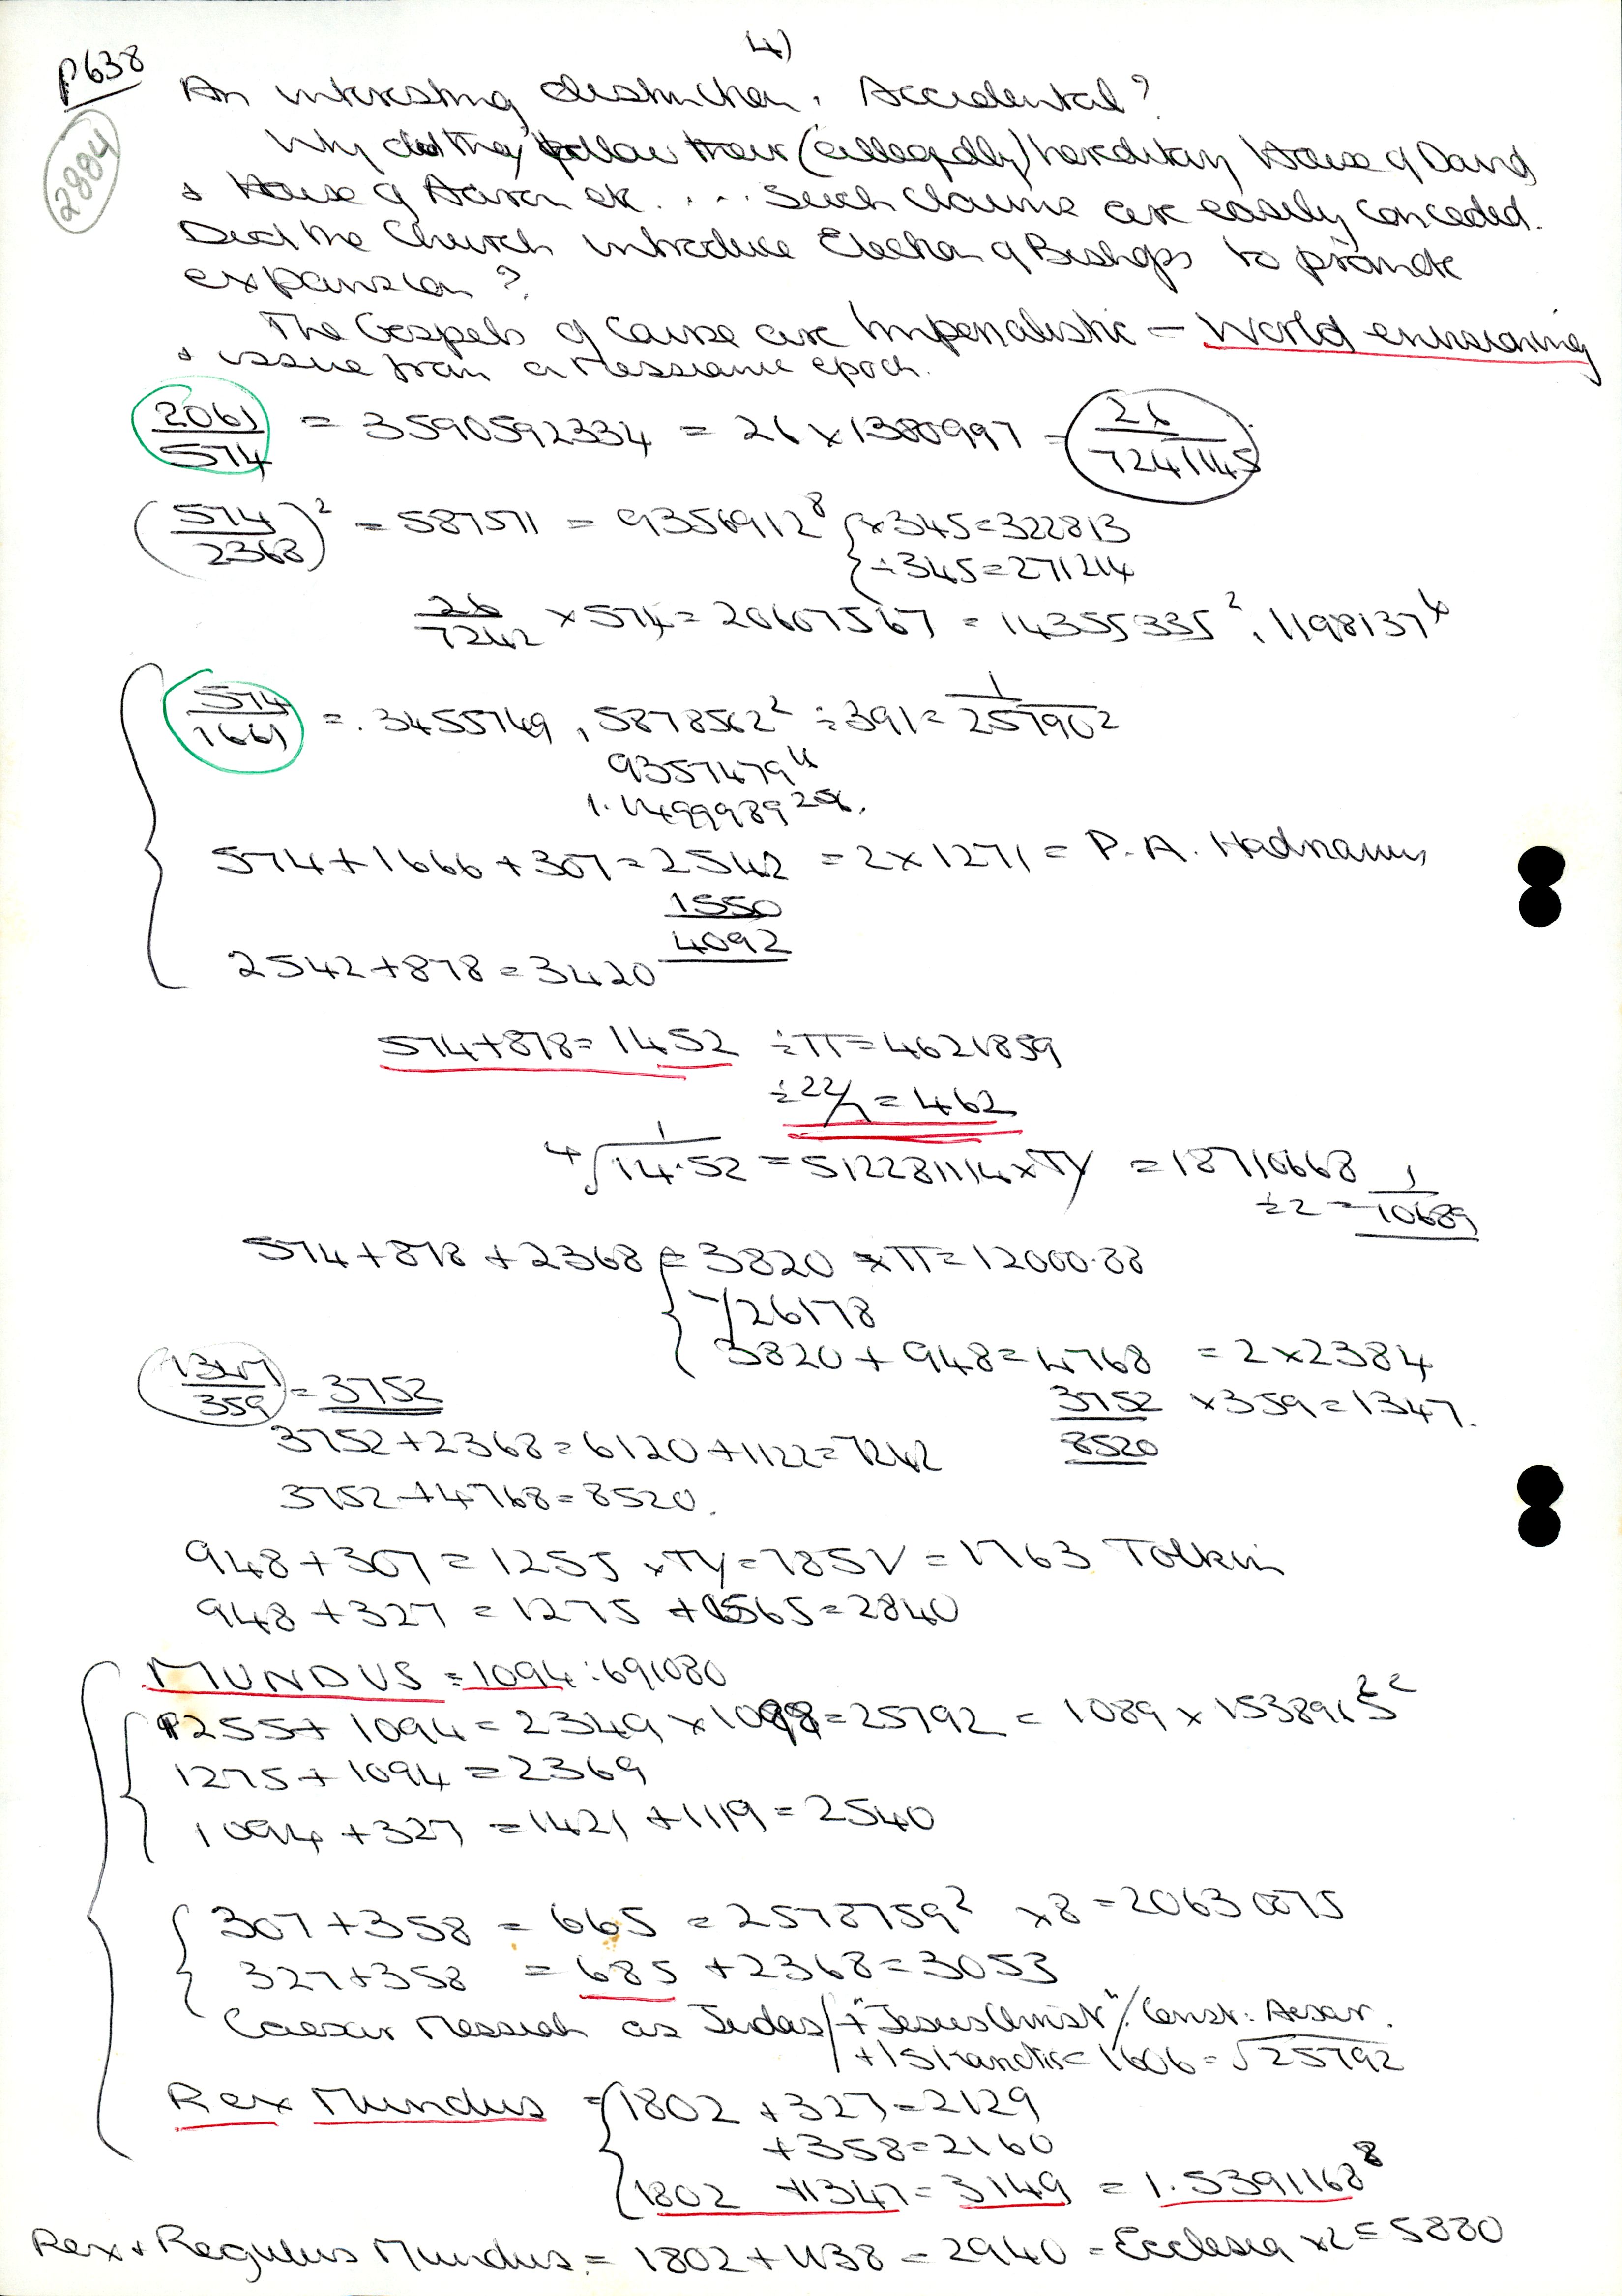 4)
P638
2884
An interesting distinction. Accidental?
Why did they follow their (allegedly) hereditary House of David
+ House of Aaron etc. ... Such claims are easily conceded.
Did the Church introduce Election of Bishops to promote
expansion?
The Gospels of course are Imperialistic — World envisioning
+ issue from a Messianic epoch.
2061/574 = 3590592334 = 26 × 1380997 = 26/7241145
(574/2368)² = 587571 = 9356912⁸ { ×345 = 322813
÷345 = 271214
26/7242 × 574 = 20607567 = 14355335², 1198137⁴
574/1661 = .3455749, 5878562² ÷ 391 = 1/257902
9357479⁴
574 + 1666 + 307 = 2542 = 2 × 1271 = P. A. Hadrianus
1550
4092
2542 + 878 = 3420
574 + 878 = 1452 ÷ π = 4621859
÷ 22/7 = 462
⁴√1/14.52 = 512281114 × π/ = 18710668
÷2 = 1/10689
574 + 878 + 2368 = 3820 × π = 12000.88
1/26178
3820 + 948 = 4768 = 2 × 2384
1347/359 = 3752
3752 × 359 = 1347.
8520
3752 + 2368 = 6120 + 1122 = 7242
3752 + 4768 = 8520.
948 + 307 = 1255 × π/ = 785 √ = 1763 Tolkein
948 + 327 = 1275 + 1565 = 2840
MUNDUS = 1094 : 691080
1255 + 1094 = 2349 × 1098 = 25792 = 1089 × 1538965²
1275 + 1094 = 2369
1094 + 327 = 1421 + 1119 = 2540
307 + 358 = 665 = 2578759² × 8 = 20630075
327 + 358 = 685 + 2368 = 3053
Caesar Messiah as Judas/+"Jesus Christ"/Const: Aesar.
= 1606 = √25792
Rex Mundus = { 1802 + 327 = 2129
+ 358 = 2160
1802 + 1347 = 3149 = 1.5391168⁸
Rex + Regulus Mundus = 1802 + 1138 = 2940 = Ecclesia ×2 = 5880